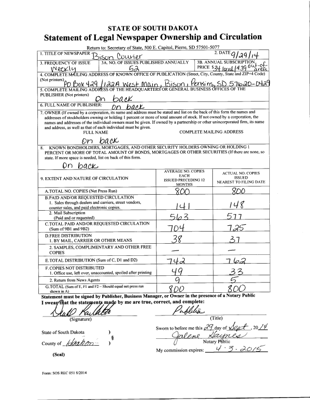 STATE OF SOUTH DAKOTA
Statement of Legal Newspaper Ownership and Circulation
Return to: Secretary of State, 500 E. Capitol, Pierre, SD 57501-5077
1. TITLE OF NEWSPAPER Bison Courier
2. DATE 9/29/14
3. FREQUENCY OF ISSUE Weekly
3A. NO. OF ISSUES PUBLISHED ANNUALLY 52
3B. ANNUAL SUBSCRIPTION PRICE
4. COMPLETE MAILING ADDRESS OF KNOWN OFFICE OF PUBLICATION (Street, City, County, State and ZIP+4 Code)
(Not printers)
PO Box 429 / 122A West Main, Bison, Perkins, SD 57620-0429
5. COMPLETE MAILING ADDRESS OF THE HEADQUARTER OR GENERAL BUSINESS OFFICES OF THE
PUBLISHER (Not printer)
On back
6. FULL NAME OF PUBLISHER: On back
7. OWNER (If owned by a corporation, its name and address must be stated and list on the back of this form the names and
addresses of stockholders owning or holding 1 percent or more of total amount of stock. If not owned by a corporation, the
names and addresses of the individual owners must be given. If owned by a partnership or other unincorporated firm, its name
and address, as well as that of each individual must be given.
FULL NAME COMPLETE MAILING ADDRESS
On back
8. KNOWN BONDHOLDERS, MORTGAGES, AND OTHER SECURITY HOLDERS OWNING OR HOLDING 1
PERCENT OR MORE OF TOTAL AMOUNT OF BONDS, MORTGAGES OR OTHER SECURITIES (If there are none, so
state. If more space is needed, list on back of this form.
On back
9. EXTENT AND NATURE OF CIRCULATION
AVERAGE NO. COPIES EACH ISSUED PRECEDING 12 MONTHS
ACTUAL NO. COPIES ISSUED NEAREST TO FILING DATE
A. TOTAL NO. COPIES (Net Press Run) 800 800
B. PAID AND/OR REQUESTED CIRCULATION
1. Sales through dealers and carriers, street vendors,
counter sales, and paid electronic copies. 141 148
2. Mail Subscription
(Paid and or requested) 563 577
C. TOTAL PAID AND/OR REQUESTED CIRCULATION
(Sum of 9B1 and 9B2) 704 725
D. FREE DISTRIBUTION
1. BY MAIL, CARRIER OR OTHER MEANS 38 37
2. SAMPLES, COMPLIMENTARY AND OTHER FREE
COPIES — —
E. TOTAL DISTRIBUTION (Sum of C, D1 and D2) 742 762
F. COPIES NOT DISTRIBUTED
1. Office use, left over, unaccounted, spoiled after printing 49 33
2. Return from News Agents 9 5
G. TOTAL (Sum of E, F1 and F2 – Should equal net press run
shown in A) 800 800
Statement must be signed by Publisher, Business Manager, or Owner in the presence of a Notary Public
I swear that the statements made by me are true, correct, and complete:
(Signature) (Title)
Sworn to before me this 29 day of Sept, 2014
State of South Dakota )
§
County of )
Notary Public
(Seal)
My commission expires: 4-3-2015
Form: SOS REC 051 9/2014